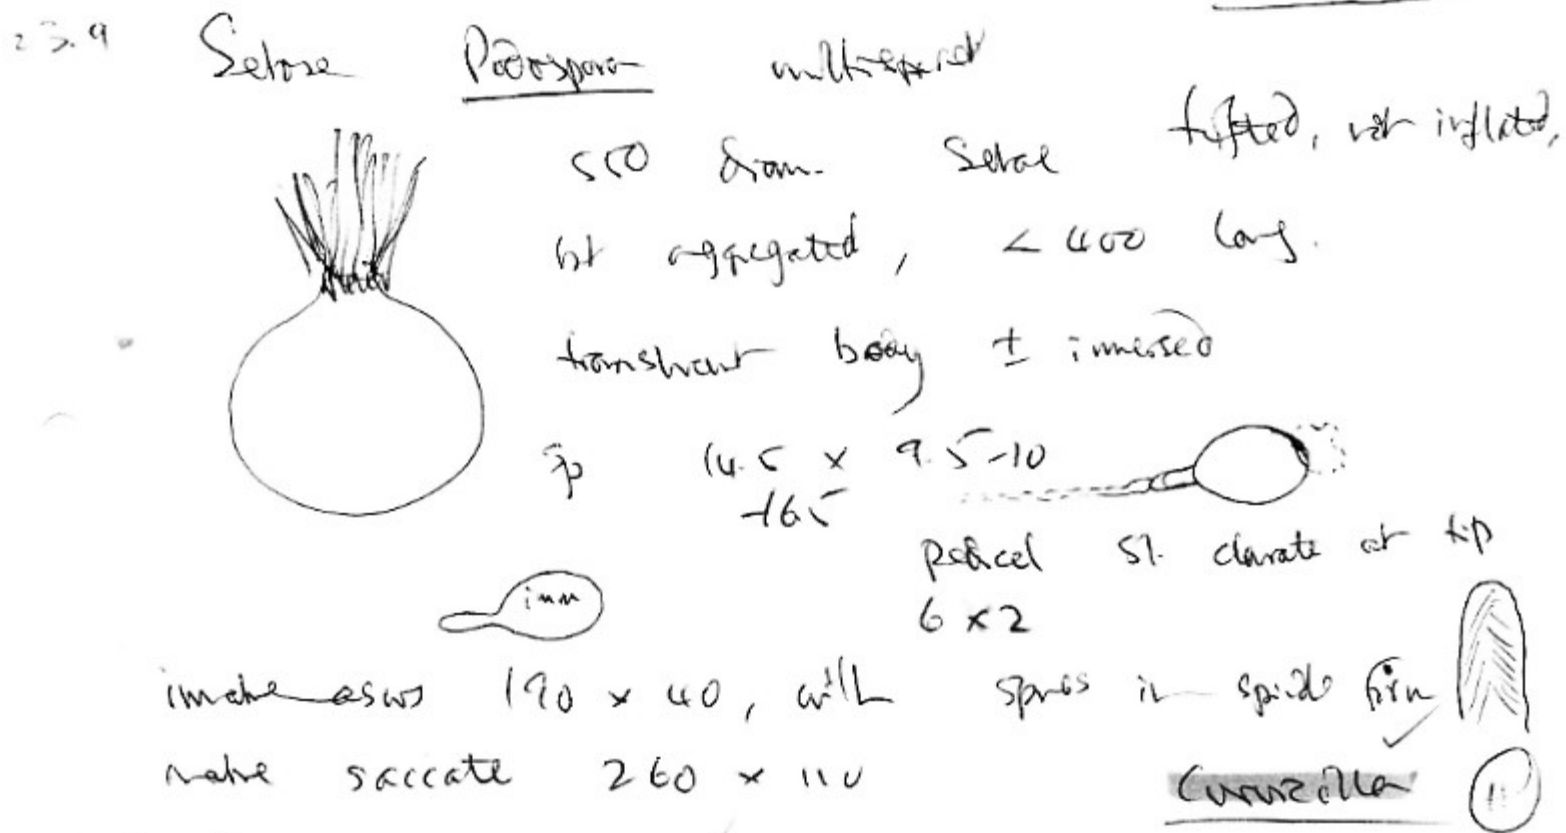 23.9 Setose Podospora multispored
550 diam. Setae tufted, not inflated,
bt aggregated, < 400 long.
translucent body ± immersed
sp 14.5 x 9.5-10
-16.5
pedicel sl. clavate at tip
6 x 2
imm
immature ascus 190 x 40, with spores in spiral
mature saccate 260 x 110
Curvicolla 11